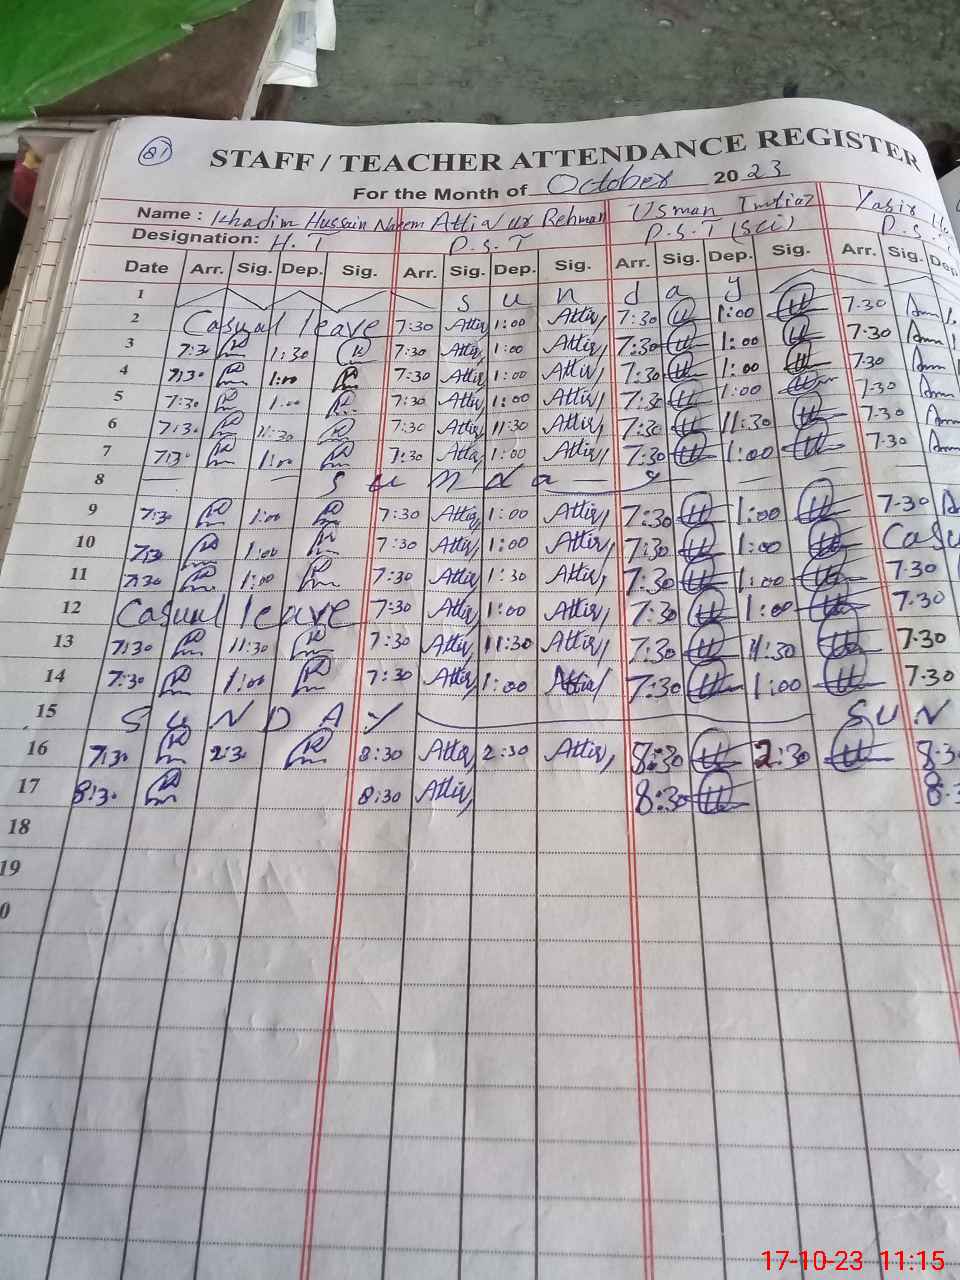 81
STAFF / TEACHER ATTENDANCE REGISTER
For the Month of October 2023
Name : Khadim Hussain Naeem Attia Ur Rehman Usman Imtiaz Yasir
Designation: H.T P.S.T P.S.T (Sci) P.S.
Date Arr. Sig. Dep. Sig. Arr. Sig. Dep. Sig. Arr. Sig. Dep. Sig. Arr. Sig. Dep
1 S u n d a y
2 Casual leave 7:30 Attia 1:00 Attia 7:30 1:00 7.30
3 7:30 1:30 7:30 Attia 1:00 Attia 7:30 1:00 7.30
4 7:30 1:00 7:30 Attia 1:00 Attia 7:30 1:00 7.30
5 7:30 1:00 7:30 Attia 1:00 Attia 7:30 1:00 7.30
6 7:30 11:30 7:30 Attia 11:30 Attia 7:30 11:30 7.30
7 7:30 1:00 7:30 Attia 1:00 Attia 7:30 1:00 7.30
8 S u n d a y
9 7:30 1:00 7:30 Attia 1:00 Attia 7:30 1:00 7.30
10 7:30 1:00 7:30 Attia 1:00 Attia 7:30 1:00 Casu
11 7:30 1:00 7:30 Attia 1:30 Attia 7:30 1:00 7.30
12 Casual leave 7:30 Attia 1:00 Attia 7:30 1:00 7.30
13 7:30 11:30 7:30 Attia 11:30 Attia 7:30 11:30 7.30
14 7:30 1:00 7:30 Attia 1:00 Attia 7:30 1:00 7.30
15 S U N D A Y S U N
16 7:30 2:30 8:30 Attia 2:30 Attia 8:30 2:30 8.3
17 8:30 8:30 Attia 8:30 8.3
18
19
0
17-10-23 11:15